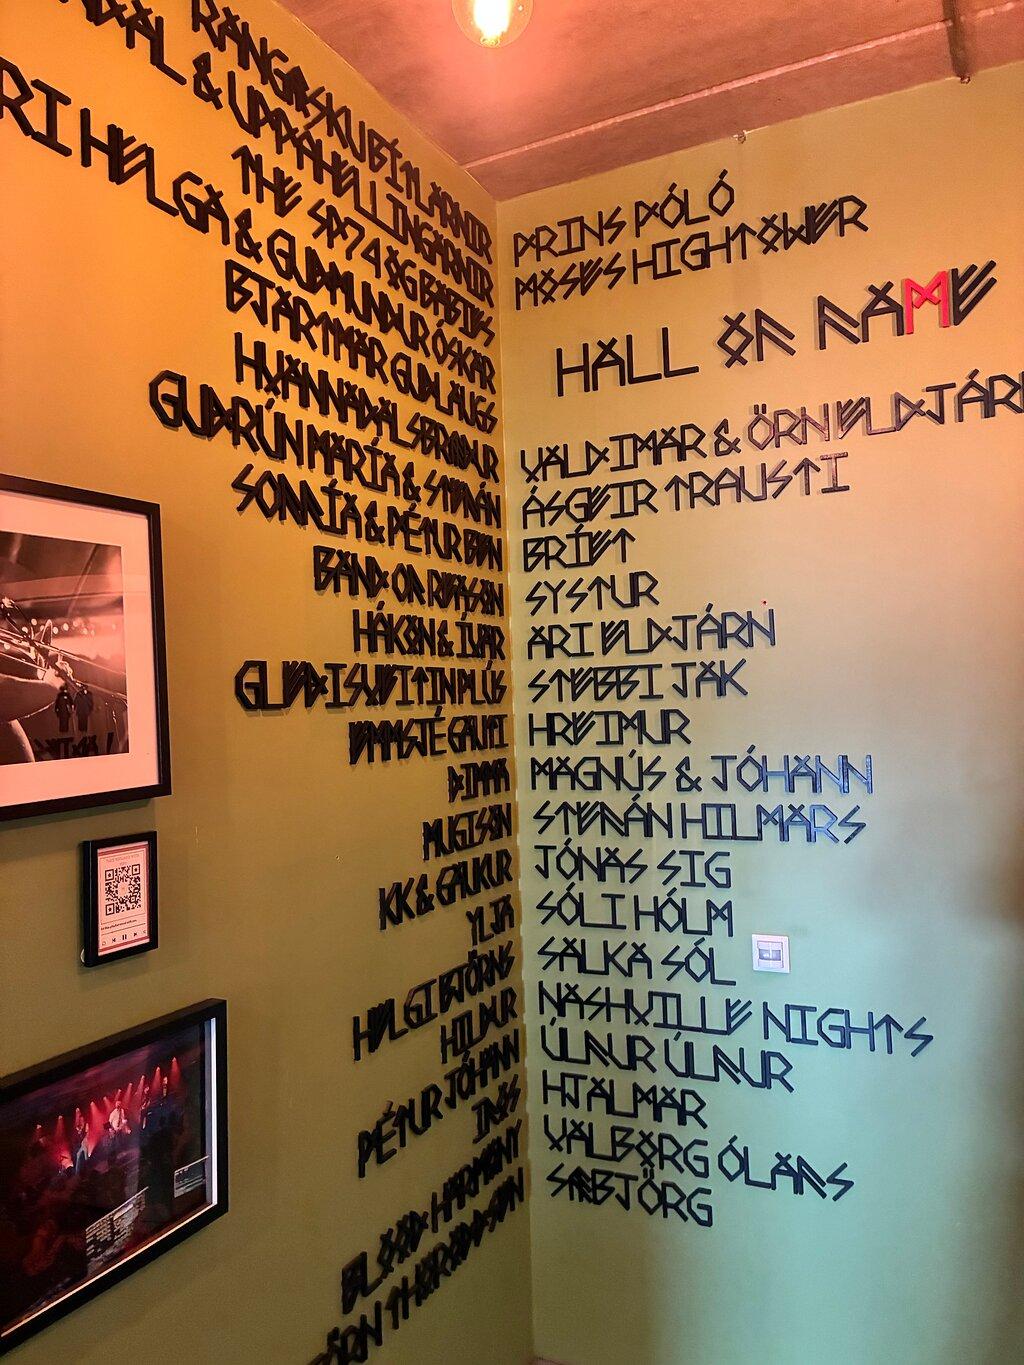 RANGÁSKUBÍTLARNIR
& UPPAHELLINGARNIR
THE SP74 OG BABIES
HELGA & GUÐMUNDUR ÓSKAR
BJARTMAR GUÐLAUGS
HVANNADALSBRÆÐUR
GUÐRÚN MARÍA & STEFÁN
SOFFÍA & PÉTUR BEN
BAND OF REASON
HÁKON & ÍVAR
GLEÐISVEITIN PLÚS
EMMSJÉ GAUTI
DIMMA
MUGISON
KK & GAUKUR
YLJA
HELGI BJÖRNS
HILDUR
PÉTUR JÓHANN
IRIS
BLOOD HARMONY
THORODDSSON
PRINS PÓLÓ
MOSES HIGHTOWER
HALL OF FAME
VALDIMAR & ÖRN ELDJÁRN
ÁSGEIR TRAUSTI
BRÍET
SYSTUR
ARI ELDJÁRN
STEBBI JAK
HREIMUR
MAGNÚS & JÓHANN
STEFÁN HILMARS
JÓNAS SIG
SÓLI HÓLM
SALKA SÓL
NASHVILLE NIGHTS
ÚLFUR ÚLFUR
HJALMAR
VALBORG ÓLAFS
SÆBJÖRG